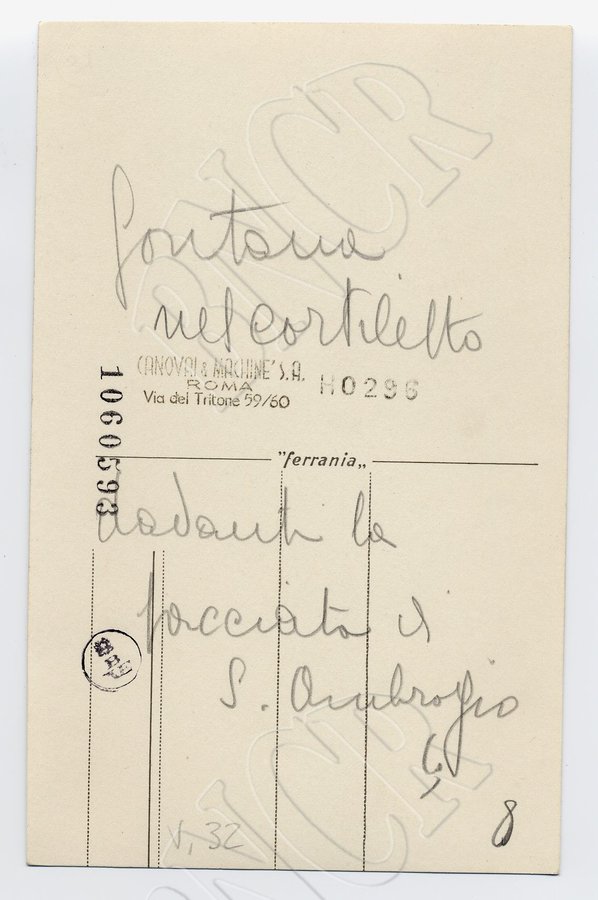 fontana
nel cortiletto
CANOVAI & MACHINE' S.A.
ROMA
Via del Tritone 59/60
H0296
1060593
"ferrania„
davanti la
facciata di
S. Ambrogio
8
V, 32
BNCR
BNCR